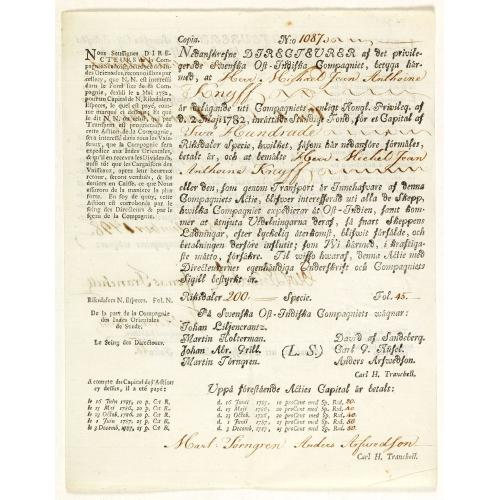 Copia. N:o 1087.
Nous Soussignés DIRE-
CTEURS de la Com-
pagnie des Indes Orien-
tales, reconnoissons par
cellecy, que N.N. est interessé
dans le Fond fixe de la Com-
pagnie, établi le 2 Maj 1782,
pour un Capital de N. Riksdalers
Especes, le quel est payé, com-
me marqué ci dessous, & que
le dit N.N. ou celui, qui par
Transport est proprietaire de
cette Action de la Compagnie,
sera interessé dans tous les Vais-
seaux, que la Compagnie fera
expedier aux Indes Orientales,
& qu'il en recevra les Dividends,
aussi tôt que les Cargaisons des
Vaisseaux, après leur heureux
retour, seront vendues, & les
deniers en Caisse, ce que Nous
assurons de la maniere la plus
forte. En foy de quoy, cette
Action est corroborée par le
seing des Directeurs & par le
sçeau de la Compagnie.
Nedanskrefne DIRECTEURER af det privile-
gerade Swenska Ost-Indiska Compagniet, betyga här-
med, at Herr Michael Jean Anthoine
Knyff
är delägande uti Compagniets enligt Kongl. Privileg. af
d. 2 Maji 1782, inrättade ståndige Fond, för et Capital af
Twå Hundrade
Riksdaler Specie, hwilket, såsom här nedanföre förmäles,
betalt är, och at bemälte Herr Michel Jean
Anthoine Knyff
eller den, som genom Transport är Innehafware af denna
Compagniets Actie, blifwer interesserad uti alla de Skepp,
hwilka Compagniet expedierar åt Ost-Indien, samt kom-
mer at åtnjuta Utdelningarna deraf, så snart Skeppens
Ladningar, efter lyckelig återkomst, blifwit försålde, och
betalningen derföre influtit; som Wi härmed, i kraftigas-
te måtto, försäkre. Til wisso hwaraf, denna Actie med
Directeurernes egenhändiga Underskrift och Compagniets
Sigill bestyrkt är.
Riksdalers N. Especes. Fol. N.
Riksdaler 200. Specie. Fol. 45.
De la part de la Compagnie
des Indes Orientales
de Suede.
Le Seing des Directeurs.
På Swenska Ost-Indiska Compagniets wägnar:
Johan Liljencrantz.
Martin Holterman. David af Sandeberg.
Johan Abr. Grill. (L. S.) Carl G. Küsel.
Martin Törngren. Anders Arfwedson.
Carl H. Tranchell.
A compte du Capital de l'Action
cy dessus, il a été payé:
le 16 Juin 1785, 20 p. Ct R.
le 27 Maj 1786, 20 p. Ct R.
le 23 Octob. 1786, 20 p. Ct R.
le 1 Juin 1787, 25 p. Ct R.
le 3 Decemb. 1787, 25 p. Ct R.
Uppå förestående Acties Capital är betalt:
d. 16 Junii 1785. 20 proCent med Sp. Rd.
d. 27 Maji 1786. 20 proCent med Sp. Rd. 40.
d. 23 Octob. 1786. 20 proCent med Sp. Rd. 40.
d. 1 Junii 1787. 25 proCent med Sp. Rd. 50.
d. 3 Decemb. 1787. 25 proCent med Sp. Rd. 50.
Mart. Törngren Anders Arfwedson
Carl H. Tranchell.